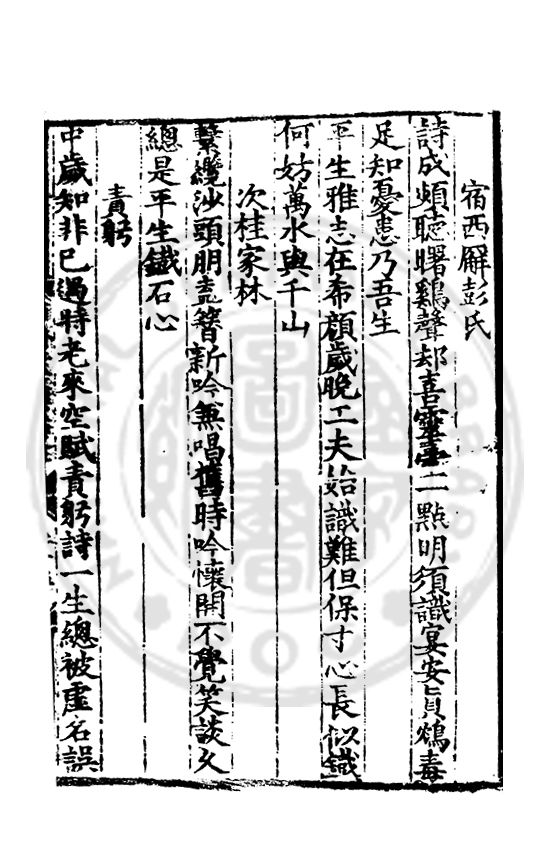 宿西廨彭氏
詩成頻聽曙鷄聲却喜靈臺一點明須識宴安眞鴆毒
足知憂患乃吾生
平生雅志在希顔歲晚工夫始識難但保寸心長似鐵
何妨萬水與千山
次桂家林
繫纜沙頭朋盍簪新吟無唱舊時吟懷開不覺笑談久
總是平生鐵石心
責躬
中歲知非已過時老來空賦責躬詩一生總被虛名誤